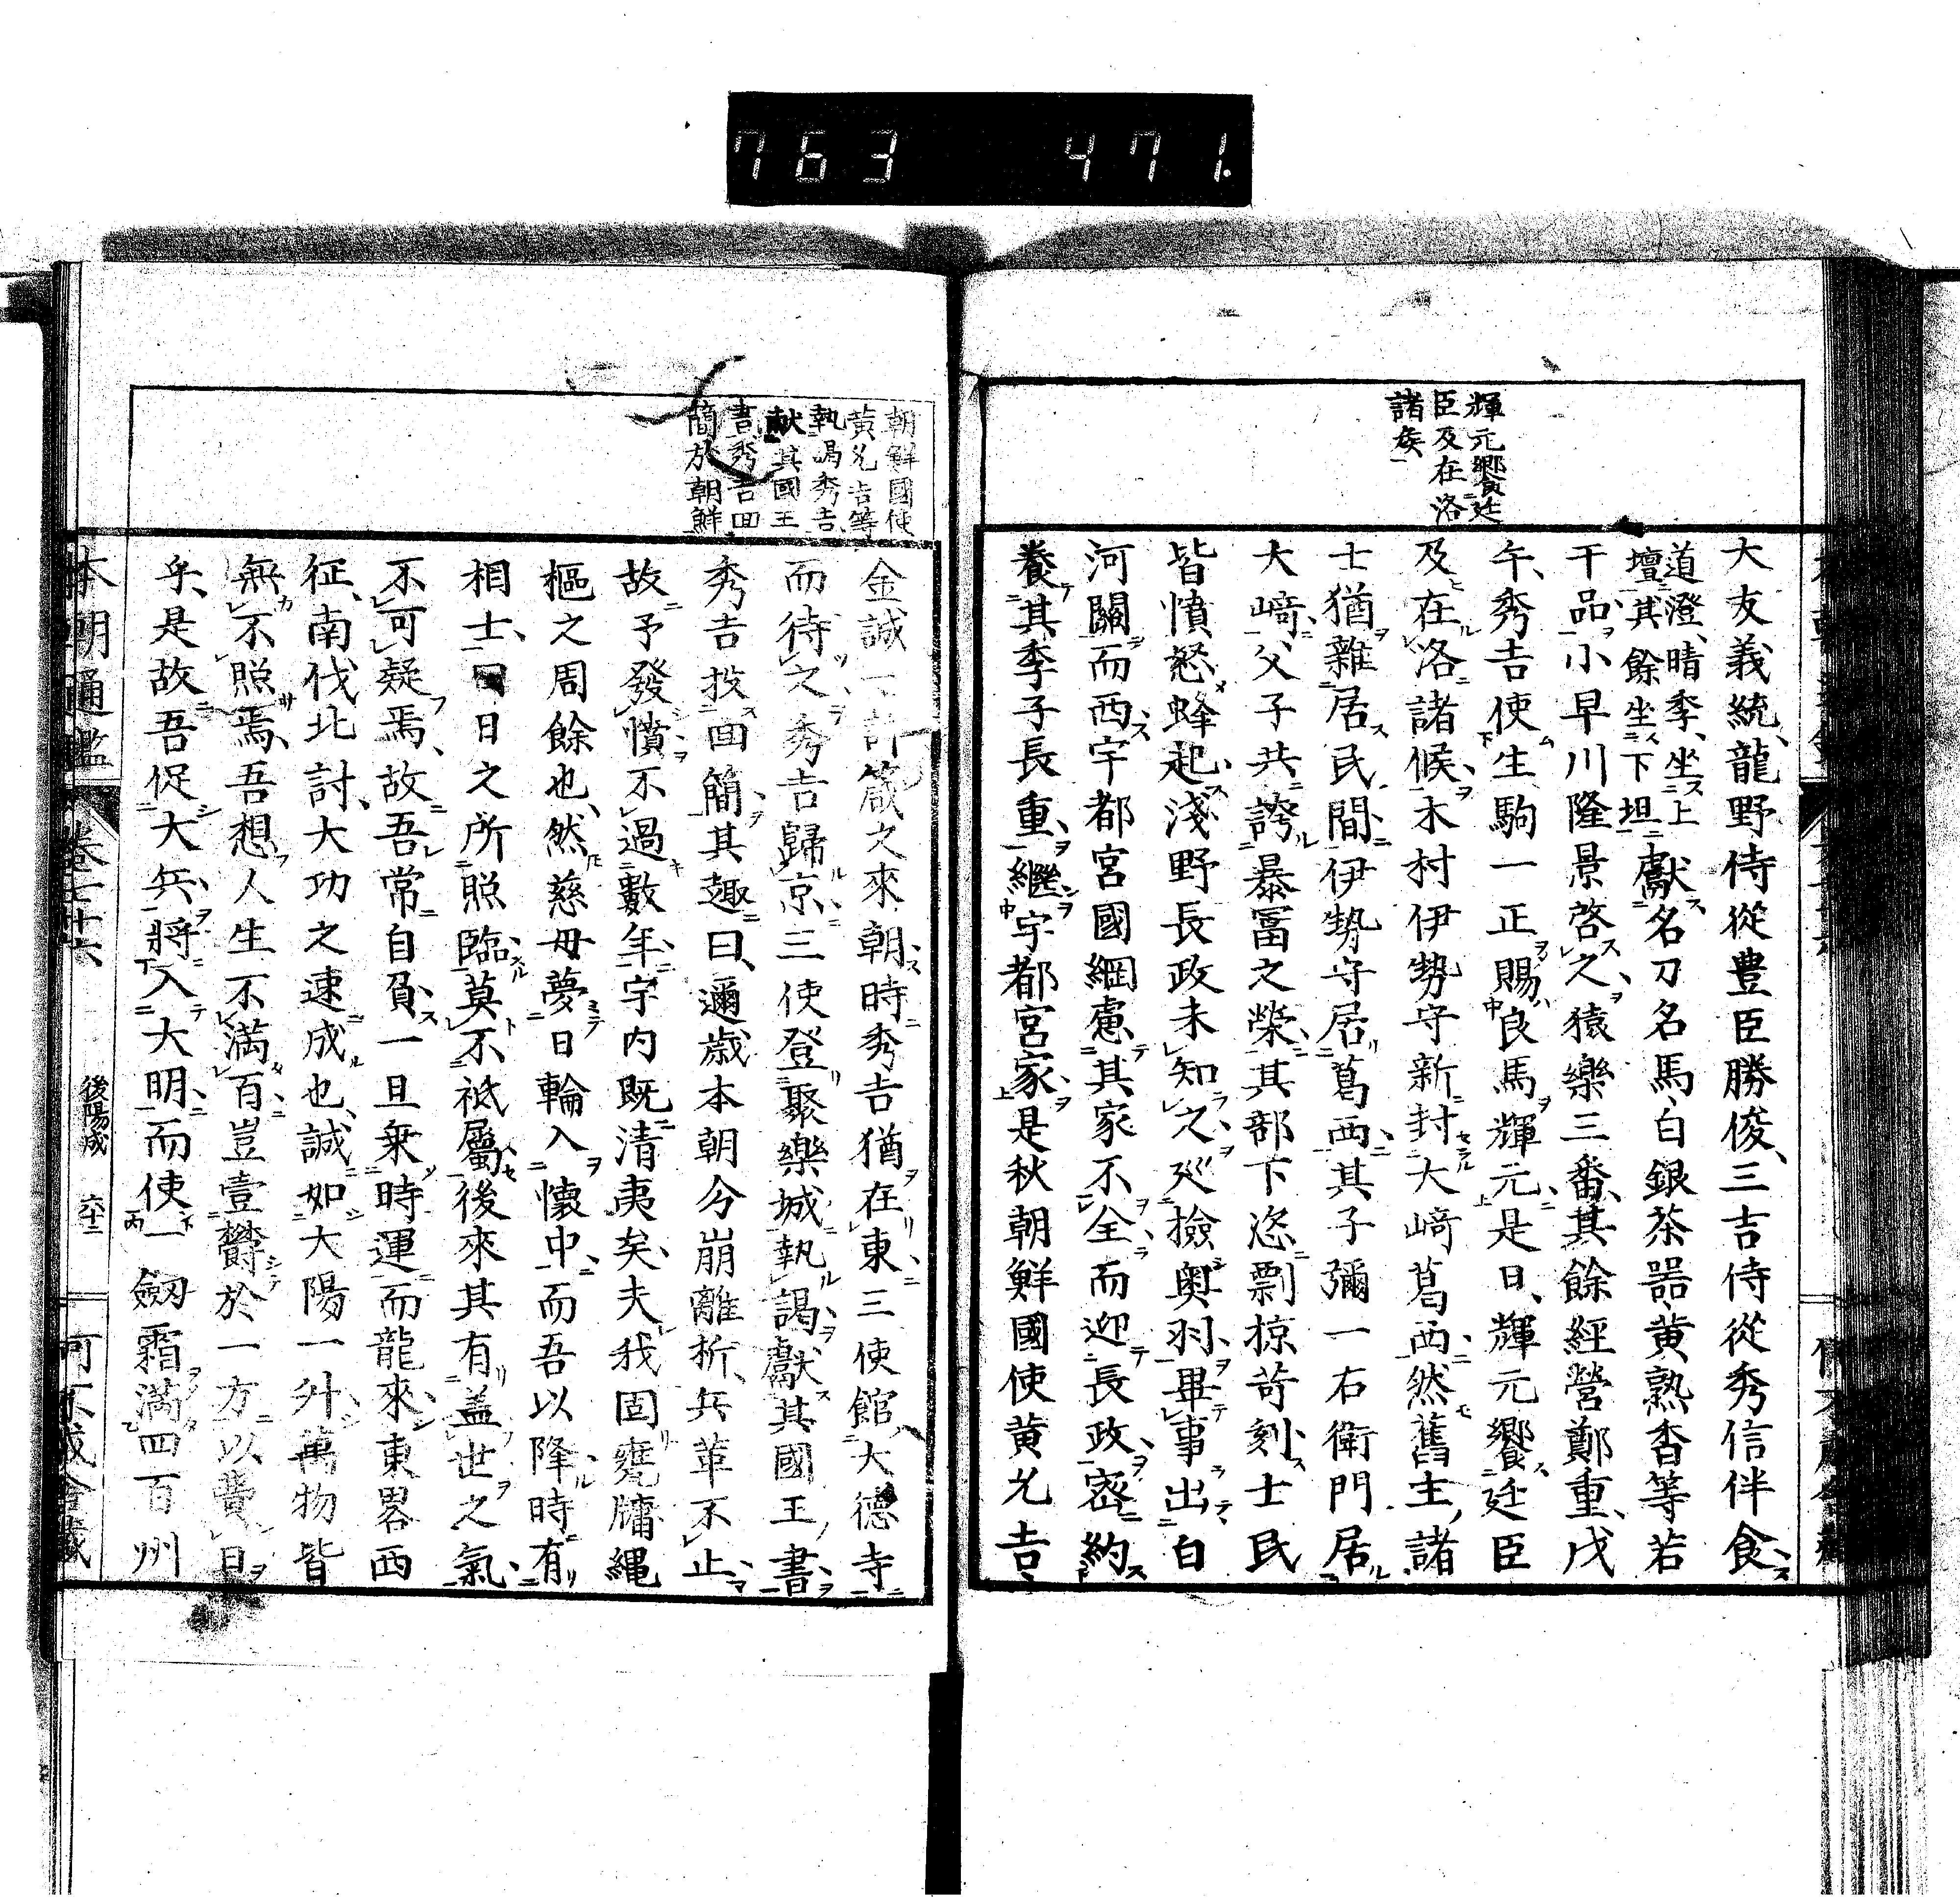 763 471.
輝元饗廷
臣及在洛
諸矦
大友義統、龍野侍從豊臣勝俊、三吉侍從秀信伴食
道澄、晴季、坐上
壇其餘坐下坦獻名刀名馬、白銀茶器、黄熟香等若
干品、小早川隆景啓之猿樂三番、其餘經營鄭重、戊
午、秀吉使生駒一正賜良馬輝元是日、輝元饗廷臣
及在洛諸候、木村伊勢守新封大﨑葛西然舊主諸
士猶雜居民間伊勢守居葛西、其子彌一右衛門居
大﨑、父子共誇暴冨之榮、其部下恣剽掠苛刻士民
皆憤怒蜂起、淺野長政未知之廵撿奥羽、畢事出白
河關而西、宇都宮國綱慮其家不全而迎長政、密約
養其季子長重、繼宇都宮家是秋朝鮮國使黄允吉、
朝鮮國使
黄允吉等
執謁秀吉
献其國王
書秀吉回
簡於朝鮮
金誠一許筬之來朝、時秀吉猶在東三使館大德寺
而待之秀吉歸京、三使登聚樂城執謁獻其國王書、
秀吉投回簡其趣曰、邇歳本朝分崩離析、兵革不止、
故予發憤不過數年、宇内既清夷矣、夫我固甕牖繩
樞之周餘也、然慈母夢日輪入懷中、而吾以降時有
相士、曰日之所照臨莫不祗屬、後來其有盖世之氣
不可疑焉、故吾常自負、一旦乗時運而龍來、東畧西
征、南伐北討、大功之速成也、誠如大陽一升萬物皆
無不照焉、吾想人生不満百豈壹欝於一方以費日
乎、是故吾促大兵、將入大明、而使一劔霜満四百州
本朝通鑑 卷七十六 後陽成 六十二